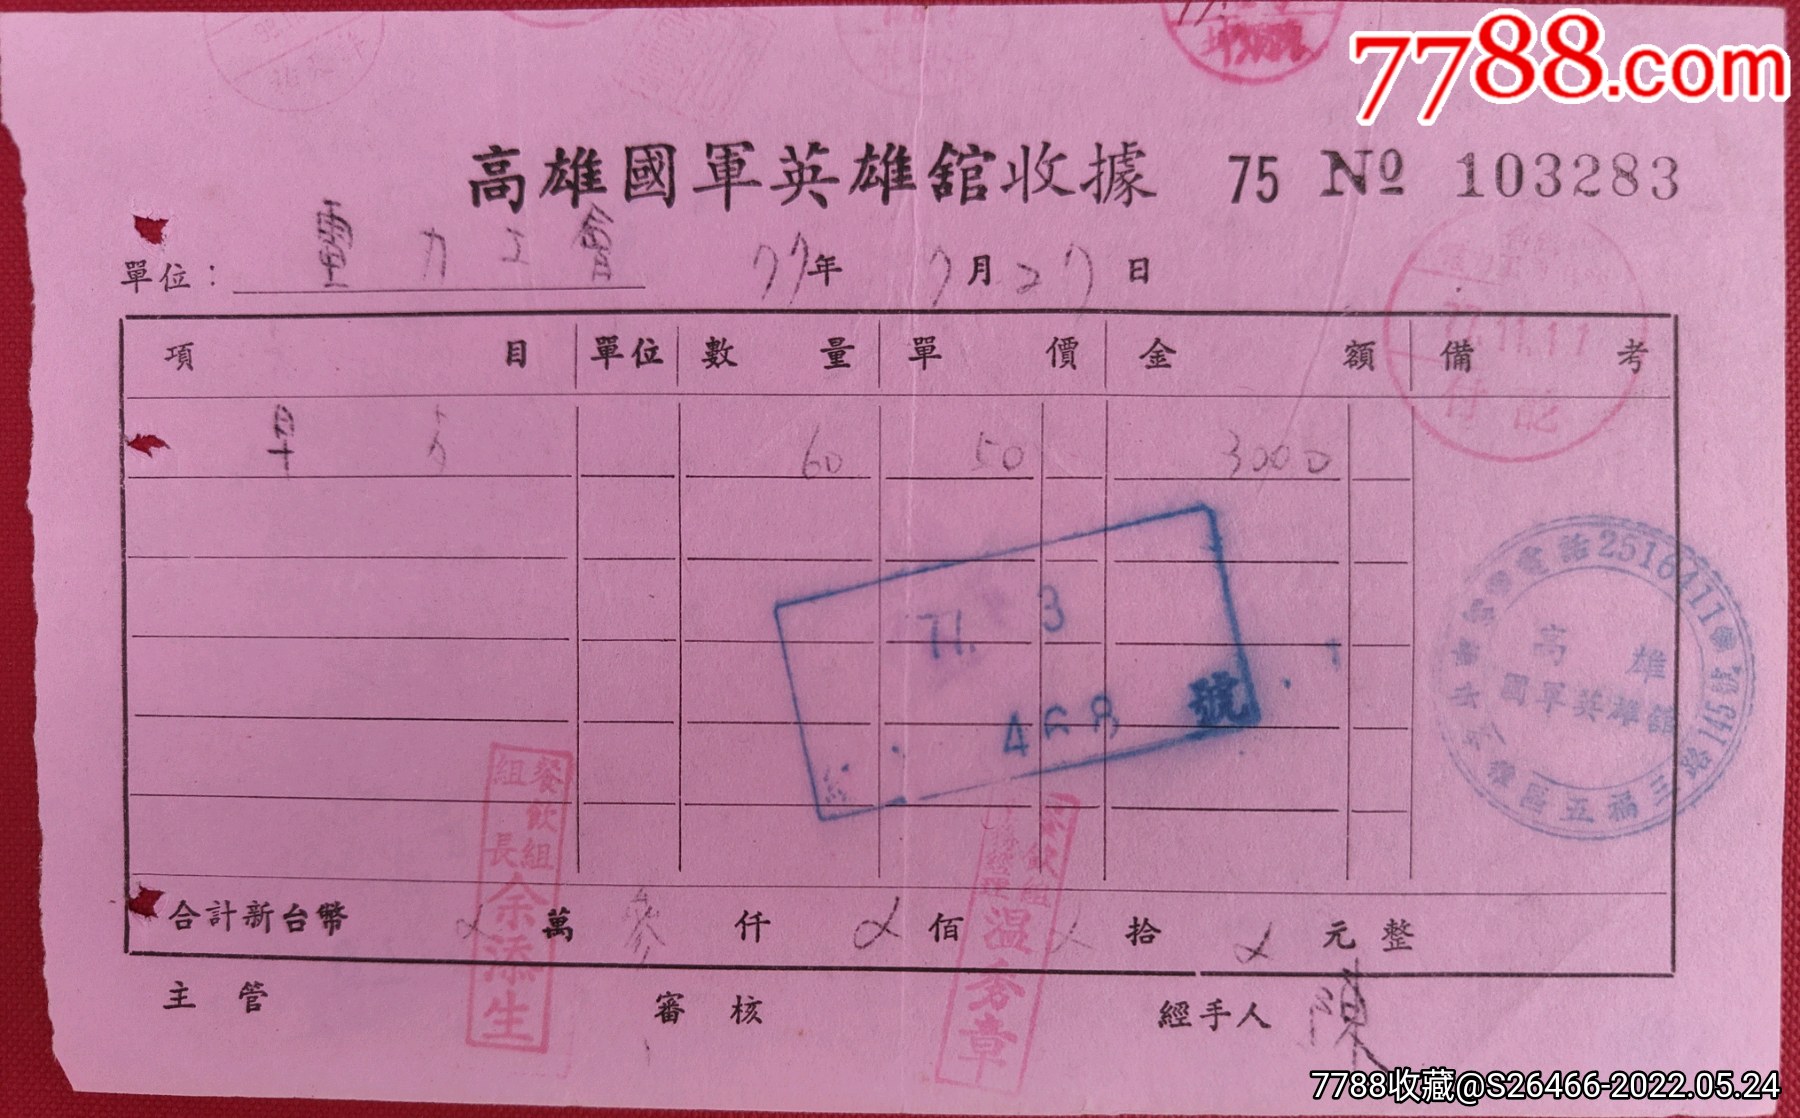 7788.com
高雄國軍英雄舘收據 75 № 103283
單位： 電力工會 77年 7月27日
項目 單位 數量 單價 金額 備考
早 60 50 3000
77.11.11
付訖
電話2516411
145號
高雄
國軍英雄舘
區五福三路
77. 3
468 號
餐飲組
組長余添生
餐飲組
温秀章
合計新台幣 萬 參仟 佰 拾 元整
主管 審核 經手人 陳
7788收藏@S26466-2022.05.24